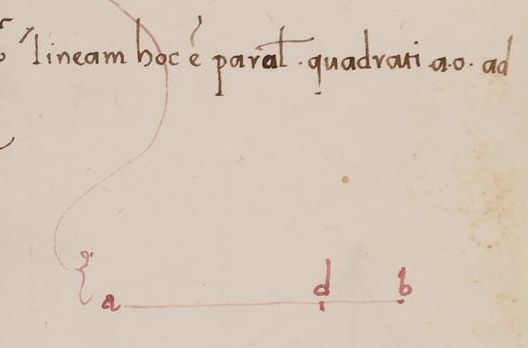 lineam hoc ē paral̄ . quadrati .a.o. ad
a d b